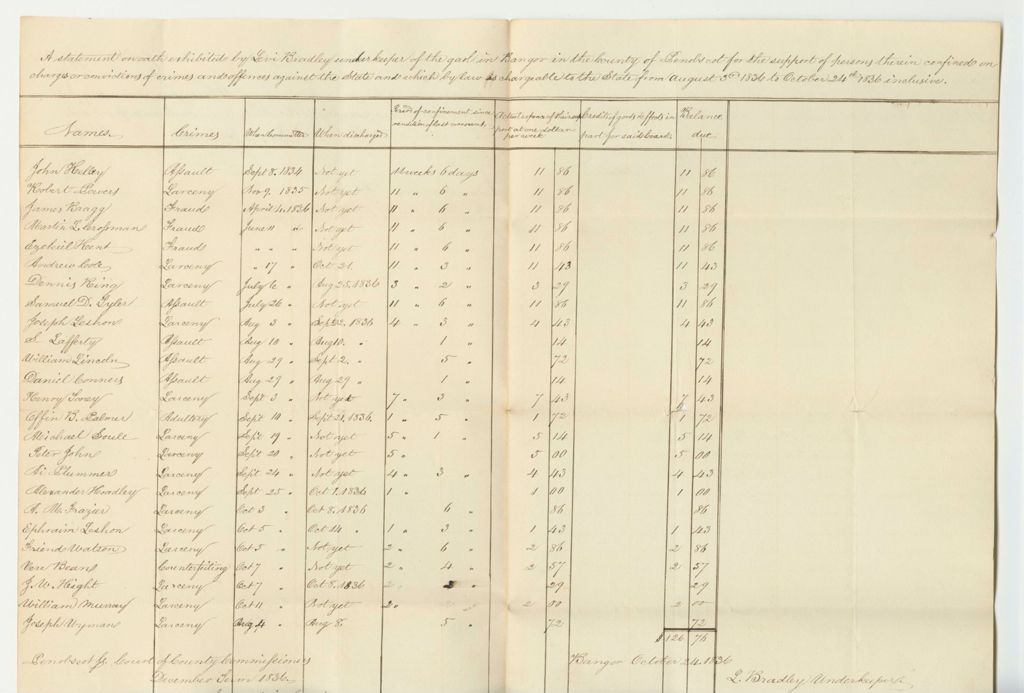 A statement on oath exhibited by Levi Bradley underkeeper of the gaol in Bangor in the County of Penobscot for the support of persons therein confined on
charges or convictions of crimes and offences against the State and which by law is chargeable to the State from August 3rd 1836 to October 24th 1836 inclusive.
Names. Crimes When committed When discharged Period of confinement since rendition of last account. Actual expense of their support at one dollar per week Credits of goods & effects in part for said board. Balance due.
John Kelley Assault Sept 8. 1834 Not yet 11 weeks 6 days 11 86 11 86
Robert Powers Larceny Nov 9. 1835 Not yet 11 " 6 " 11 86 11 86
James Bragg Fraud April 4. 1836 Not yet 11 " 6 " 11 86 11 86
Martin L. Crossman Fraud June 11 " Not yet 11 " 6 " 11 86 11 86
Ezekiel Kent Fraud " " " Not yet 11 " 6 " 11 86 11 86
Andrew Cole Larceny " 17 " Oct 21. 11 " 3 " 11 43 11 43
Dennis King Larceny July 6 " Aug 25. 1836 3 " 2 " 3 29 3 29
Samuel D. Tyler Assault July 26 " Not yet 11 " 6 " 11 86 11 86
Joseph Leshon Larceny Aug 3 " Sept 2. 1836 4 " 3 " 4 43 4 43
S. Lafferty Assault Aug 10 " Aug 10. " 1 " 14 14
William Lincoln Assault Aug 29 " Sept 2. " 5 " 72 72
Daniel Conners Assault Aug 29 " Aug 29 " 1 " 14 14
Henry Tovey Larceny Sept 3 " Not yet 7 " 3 " 7 43 7 43
Effin B. Palmer Adultery Sept 10 " Sept 21. 1836. 1 " 5 " 1 72 1 72
Michael Soule Larceny Sept 19 " Not yet 5 " 1 " 5 14 5 14
Peter John Larceny Sept 20 " Not yet 5 " 5 00 5 00
Si Plummer Larceny Sept 24 " Not yet 4 " 3 " 4 43 4 43
Alexander Hoadley Larceny Sept 25 " Oct 1. 1836 1 " 1 00 1 00
A. M. Frazier Larceny Oct 3 " Oct 8. 1836 6 " 86 86
Ephraim Leshon Larceny Oct 5 " Oct 14 " 1 " 3 " 1 43 1 43
Friend Watson Larceny Oct 5 " Not yet 2 " 6 " 2 86 2 86
Vere Beans Counterfeiting Oct 7 " Not yet 2 " 4 " 2 57 2 57
J. W. Hight Larceny Oct 7 " Oct 8. 1836 2 " 29 29
William Murray Larceny Oct 11 " Not yet 2 " 2 00 2 00
Joseph Wyman Larceny Aug 4 " Aug 8. 5 " 72 72
$126 76
Penobscot ss. Court of County Commissioners
December Term 1836.
Bangor October 24. 1836
L. Bradley Underkeeper